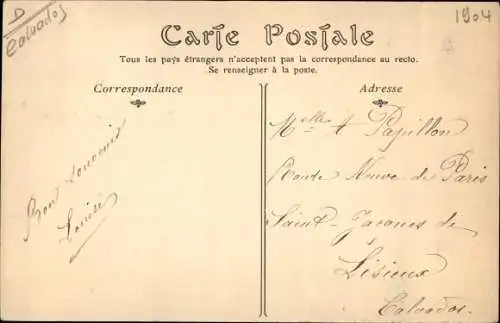 D
Calvados
1904
Carte Postale
Tous les pays étrangers n'acceptent pas la correspondance au recto.
Se renseigner à la poste.
Correspondance
Bon souvenir
Louise
Adresse
Melle A Papillon
Route Neuve de Paris
Saint-Jacques de
Lisieux
Calvados.